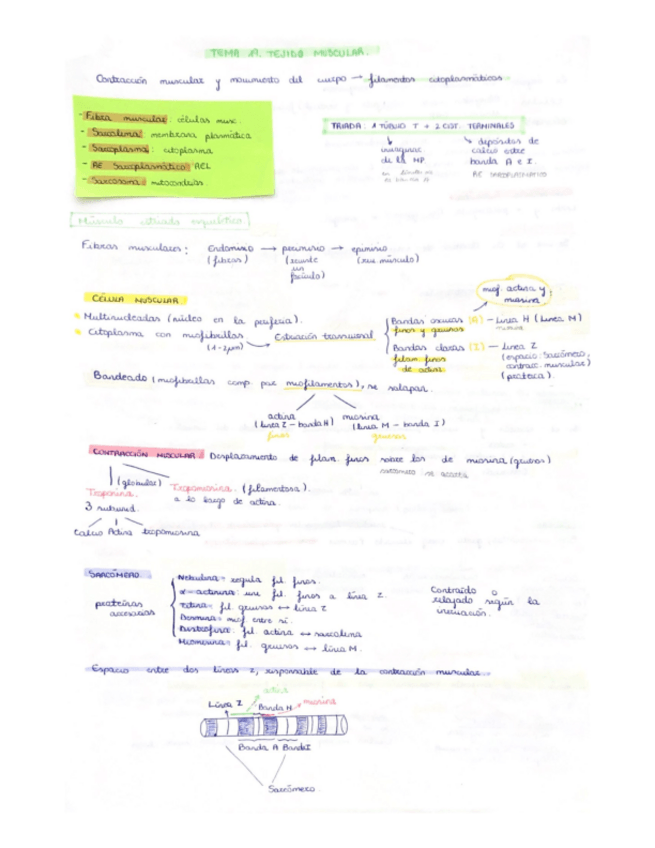 TEMA 19. TEJIDO MUSCULAR.
Contracción muscular y movimiento del cuerpo → filamentos citoplasmáticos
- Fibra muscular: células musc.
- Sarcolema: membrana plasmática
- Sarcoplasma: citoplasma
- RE Sarcoplasmático: REL
- Sarcosoma: mitocondrias.
TRIADA: 1 TÚBULO T + 2 CIST. TERMINALES
de la MP
depósitos de
calcio entre
banda A e I.
RE SARCOPLASMÁTICO
Músculo estriado esquelético
Fibras musculares: Endomisio → perimisio → epimisio
(fibras) (reúne un fascículo) (reú músculo)
CÉLULA MUSCULAR
Multinucleadas (núcleo en la periferia).
Citoplasma con miofibrillas → Estriación transversal
(1-2µm)
miof. actina y
miosina
Bandas oscuras (A) - Línea H (Línea M)
finos y gruesos miosina
Bandas claras (I) - Línea Z
filam finos (espacio: sarcómero,
de actina. contracc. muscular)
(proteica).
Bandeado (miofibrillas comp. por miofilamentos), se solapan.
actina miosina
(Línea Z - banda H) (Línea M - banda I)
finos gruesos
CONTRACCIÓN MUSCULAR: Desplazamiento de filam. finos sobre los de miosina (gruesos)
sarcómero se acorta
(globular) Tropomiosina. (filamentosa).
Troponina. a lo largo de actina.
3 subunid.
Calcio Actina tropomiosina
SARCÓMERO
proteínas
accesorias
Nebulina = regula fil. finos.
α-actinina: une fil. finos a línea Z.
Titina = fil. gruesos ↔ línea Z
Desmina = miof. entre sí.
Distrofina: fil. actina ↔ sarcolema
Miomesina: fil. gruesos ↔ línea M.
Contraído o
relajado según la
inervación.
Espacio entre dos líneas Z, responsable de la contracción muscular.
actina
Línea Z Banda H miosina
Banda A Banda I
Sarcómero